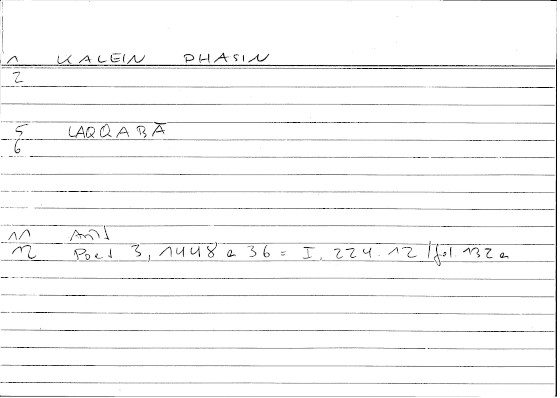 1 KALEIN PHASIN
2
5 LAQQABĀ
6
11 Arist
12 Poet 3, 1448 a 36 = I. 224.12 / fol. 132a